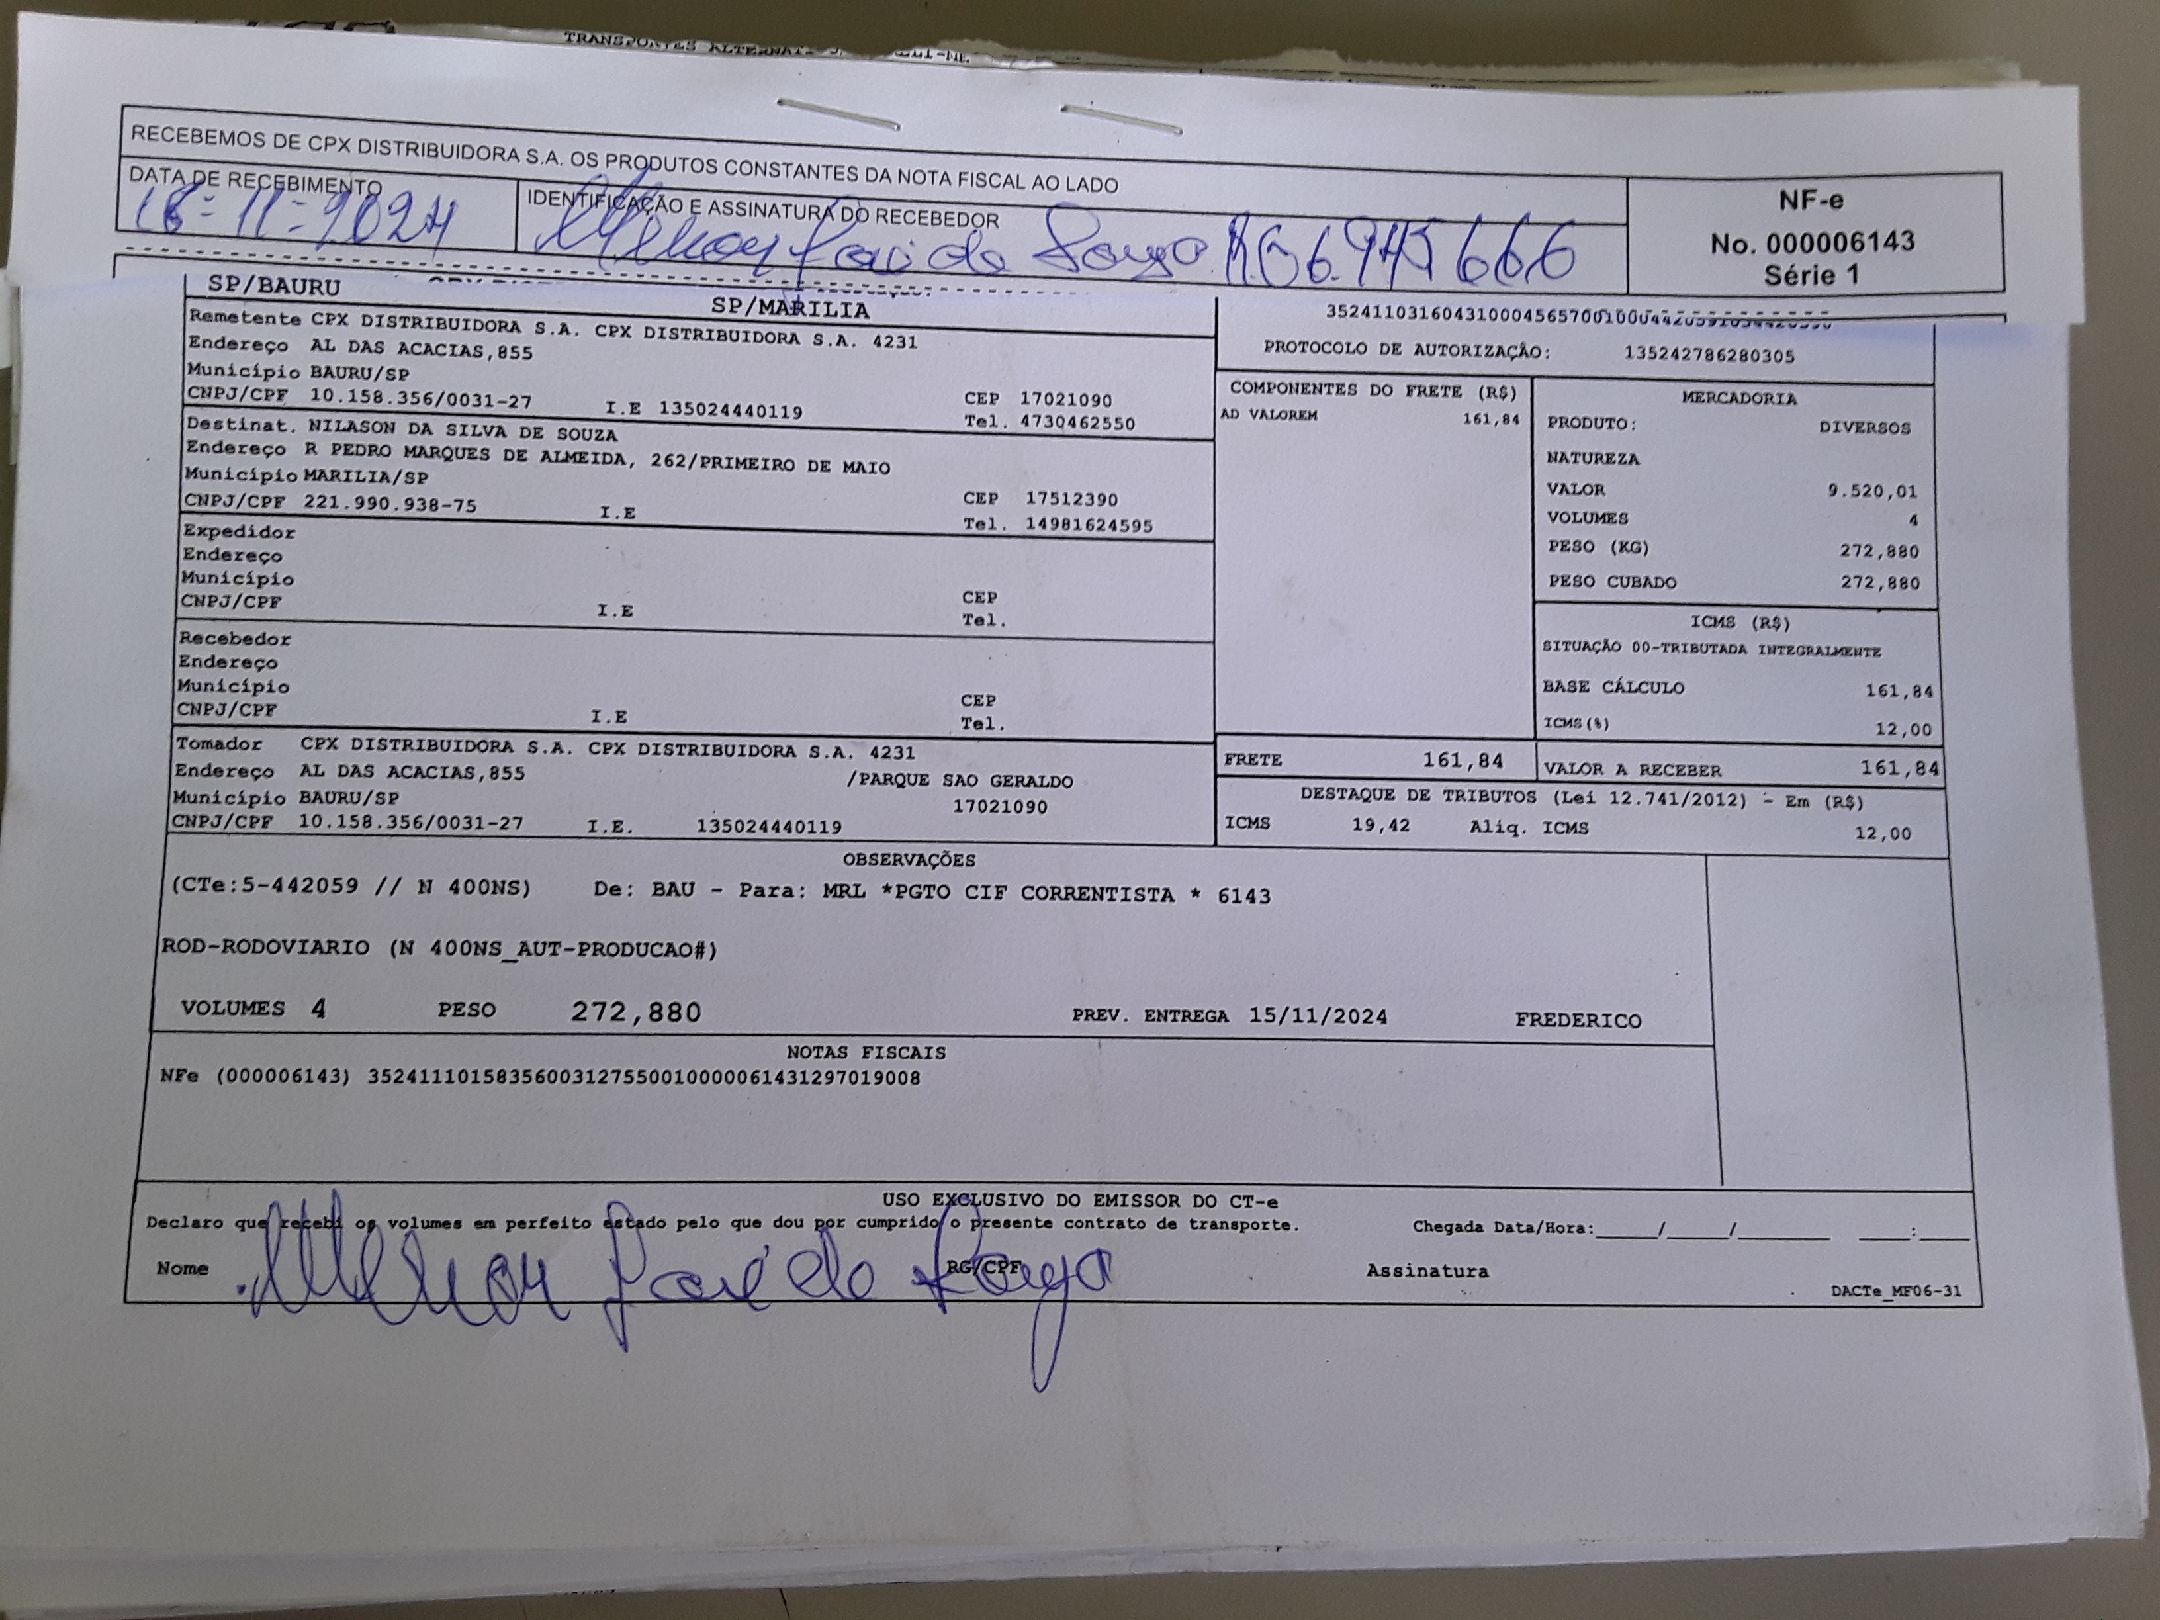 RECEBEMOS DE CPX DISTRIBUIDORA S.A. OS PRODUTOS CONSTANTES DA NOTA FISCAL AO LADO
DATA DE RECEBIMENTO
IDENTIFICAÇÃO E ASSINATURA DO RECEBEDOR
11-2024
de Souza
NF-e
No. 000006143
Série 1
SP/BAURU
SP/MARILIA
Remetente CPX DISTRIBUIDORA S.A. CPX DISTRIBUIDORA S.A. 4231
Endereço AL DAS ACACIAS,855
Município BAURU/SP
CNPJ/CPF 10.158.356/0031-27 I.E 135024440119
CEP 17021090
Tel. 4730462550
Destinat. NILASON DA SILVA DE SOUZA
Endereço R PEDRO MARQUES DE ALMEIDA, 262/PRIMEIRO DE MAIO
Município MARILIA/SP
CNPJ/CPF 221.990.938-75 I.E
CEP 17512390
Tel. 14981624595
Expedidor
Endereço
Município
CNPJ/CPF I.E
CEP
Tel.
Recebedor
Endereço
Município
CNPJ/CPF I.E
CEP
Tel.
Tomador CPX DISTRIBUIDORA S.A. CPX DISTRIBUIDORA S.A. 4231
Endereço AL DAS ACACIAS,855 /PARQUE SAO GERALDO
Município BAURU/SP 17021090
CNPJ/CPF 10.158.356/0031-27 I.E. 135024440119
PROTOCOLO DE AUTORIZAÇÃO: 135242786280305
COMPONENTES DO FRETE (R$)
AD VALOREM 161,84
MERCADORIA
PRODUTO: DIVERSOS
NATUREZA
VALOR 9.520,01
VOLUMES 4
PESO (KG) 272,880
PESO CUBADO 272,880
ICMS (R$)
SITUAÇÃO 00-TRIBUTADA INTEGRALMENTE
BASE CÁLCULO 161,84
ICMS(%) 12,00
FRETE 161,84
VALOR A RECEBER 161,84
DESTAQUE DE TRIBUTOS (Lei 12.741/2012) - Em (R$)
ICMS 19,42 Aliq. ICMS 12,00
OBSERVAÇÕES
(CTe:5-442059 // N 400NS) De: BAU - Para: MRL *PGTO CIF CORRENTISTA * 6143
ROD-RODOVIARIO (N 400NS_AUT-PRODUCAO#)
VOLUMES 4 PESO 272,880 PREV. ENTREGA 15/11/2024 FREDERICO
NOTAS FISCAIS
NFe (000006143) 35241110158356003127550010000061431297019008
USO EXCLUSIVO DO EMISSOR DO CT-e
Declaro que recebi os volumes em perfeito estado pelo que dou por cumprido o presente contrato de transporte. Chegada Data/Hora:_____/_____/________ ____:____
Nome RG/CPF Assinatura
DACTe_MF06-31